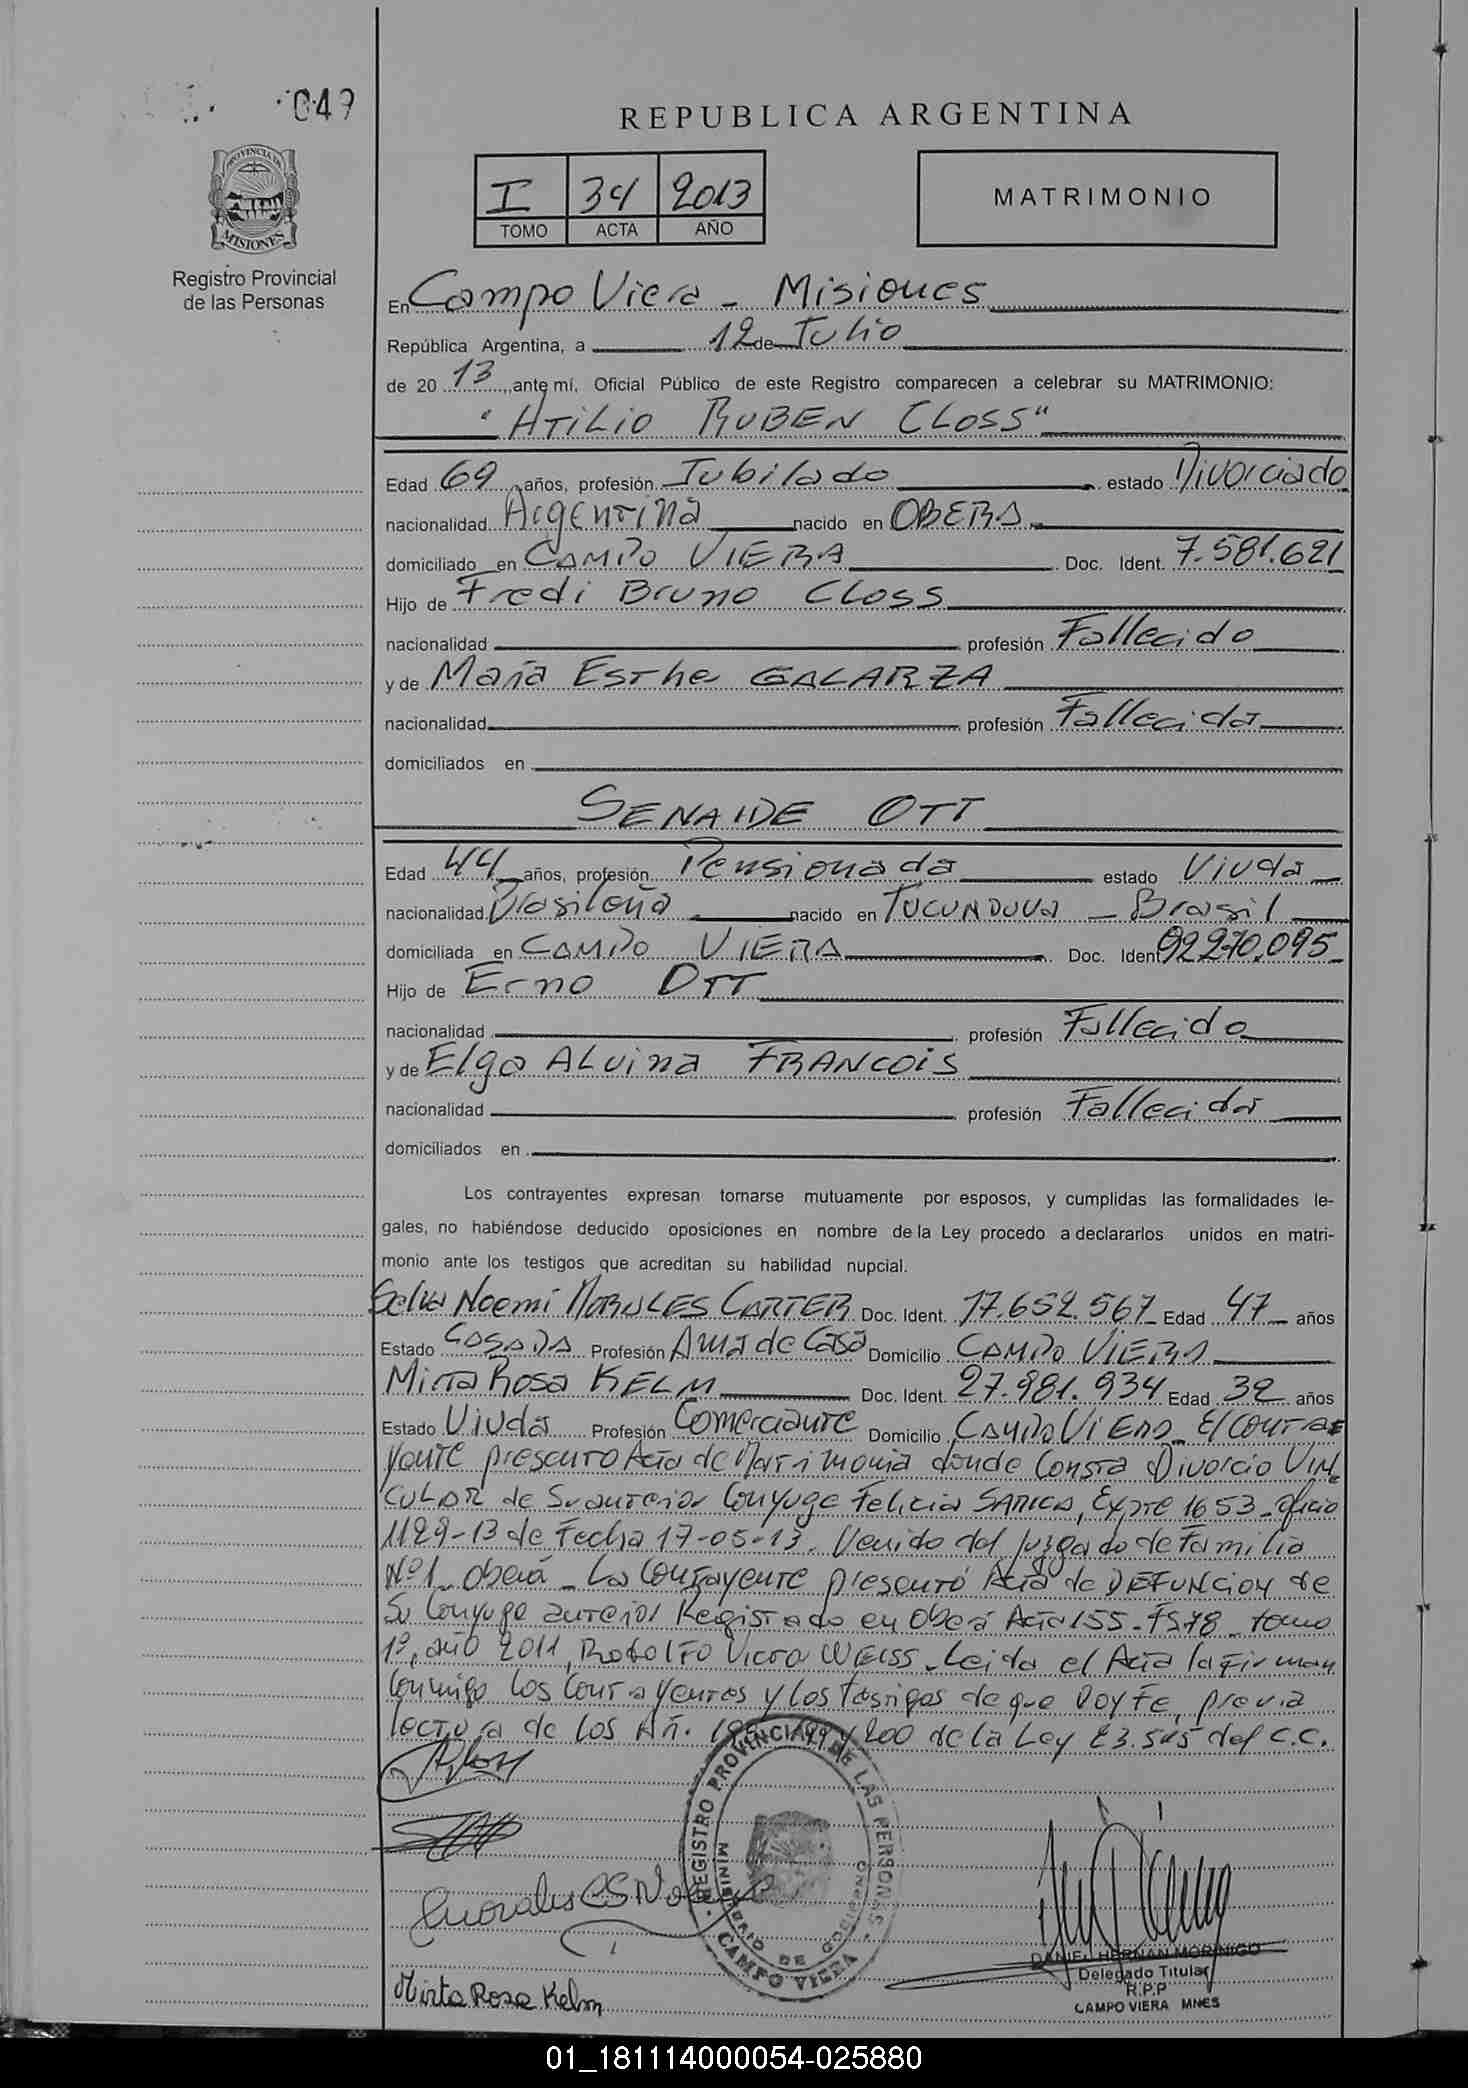 049
REPUBLICA ARGENTINA
I 34 2013
TOMO ACTA AÑO
MATRIMONIO
PROVINCIA DE
MISIONES
Registro Provincial
de las Personas
En Campo Viera - Misiones
República Argentina, a 12 de Julio
de 20 13, ante mí, Oficial Público de este Registro comparecen a celebrar su MATRIMONIO:
"ATILIO RUBEN CLOSS"
Edad 69 años, profesión Jubilado estado Divorciado
nacionalidad Argentina nacido en OBERA
domiciliado en CAMPO VIERA Doc. Ident. 7.581.621
Hijo de Fredi Bruno CLOSS
nacionalidad profesión Fallecido
y de Maria Esther GALARZA
nacionalidad profesión Fallecida
domiciliados en
SENAIDE OTT
Edad 44 años, profesión Pensionada estado Viuda
nacionalidad Brasileña nacido en TUCUNDUVA - Brasil
domiciliada en CAMPO VIERA Doc. Ident 92270.095
Hijo de Erno OTT
nacionalidad profesión Fallecido
y de Elga ALvina FRANCOIS
nacionalidad profesión Fallecida
domiciliados en
Los contrayentes expresan tomarse mutuamente por esposos, y cumplidas las formalidades le-
gales, no habiéndose deducido oposiciones en nombre de la Ley procedo a declararlos unidos en matri-
monio ante los testigos que acreditan su habilidad nupcial.
Selva Noemi MORALES CARTER Doc. Ident. 17.652.567 Edad 47 años
Estado CASADA Profesión Ama de Casa Domicilio CAMPO VIERA
Mirta Rosa KELM Doc. Ident. 27.981.934 Edad 32 años
Estado Viuda Profesión Comerciante Domicilio CAMPO VIERA_ El contra
yente presento Acta de Matrimonio donde Consta Divorcio VIN
CULAR de Su anterior Conyuge Felicia Expte 1653_ oficio
1129-13 de Fecha 17-05-13. Venido del Juzgado de Familia
Nº1_ oberá_ La Contrayente presentó Acta de DEFUNCION de
Su Conyuge anterior Registrado en Oberá Acta 155_ tomo
1º, año 2011, RODOLFO Victor WEISS_ Leida el Acta la Firman
Conmigo los Contrayentes y los testigos de que Doy Fe, previa
lectura de los 198, 199 y 200 de la Ley 23.515 del C.C.
REGISTRO PROVINCIAL DE LAS PERSONAS
MINISTERIO DE GOBIERNO
CAMPO VIERA
Mirta Rosa Kelm
DANIEL HERNAN MORINIGO
Delegado Titular
R.P.P
CAMPO VIERA MNES
01_181114000054-025880